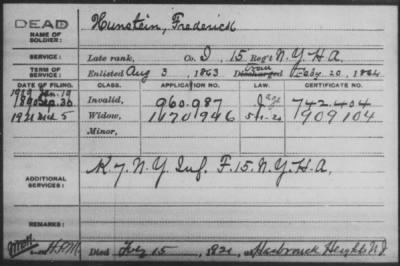 DEAD
NAME OF SOLDIER:
Hunstein, Frederick
SERVICE:
Late rank, Co. I, 15 Reg't N.Y.H.A.
TERM OF SERVICE:
Enlisted Aug 3, 1863 Discharged Feby 20, 1864
DATE OF FILING. CLASS. APPLICATION NO. LAW. CERTIFICATE NO.
1890 Sep. 30 Invalid, 960.987 742.404
1921 Widow, 1170946 5-1-20 909104
Minor,
ADDITIONAL SERVICES:
K 7. N.Y. Inf. F. 15. N.Y.H.A.
REMARKS:
Died 15, 1921, at Hasbrouck Heights N.J.